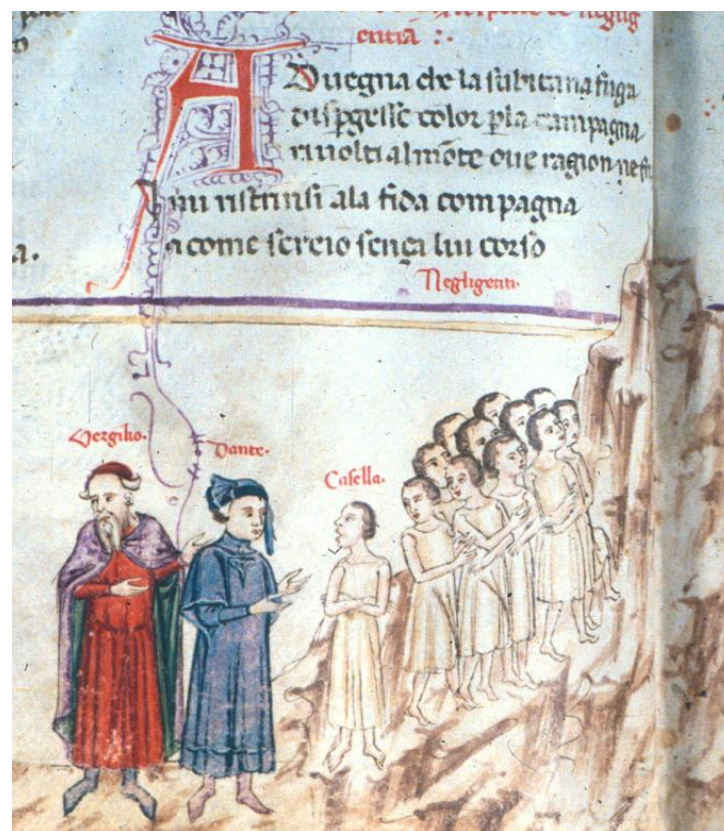 entia :·
Aduegna che la subitana fuga
dispgesse color p la campagna
riuolti al mōte oue ragion ne
mi ristrinsi ala fida compagna
a come sereio sença lui corso
a.
Negligenti·
Vergilio·
Dante·
Casella·